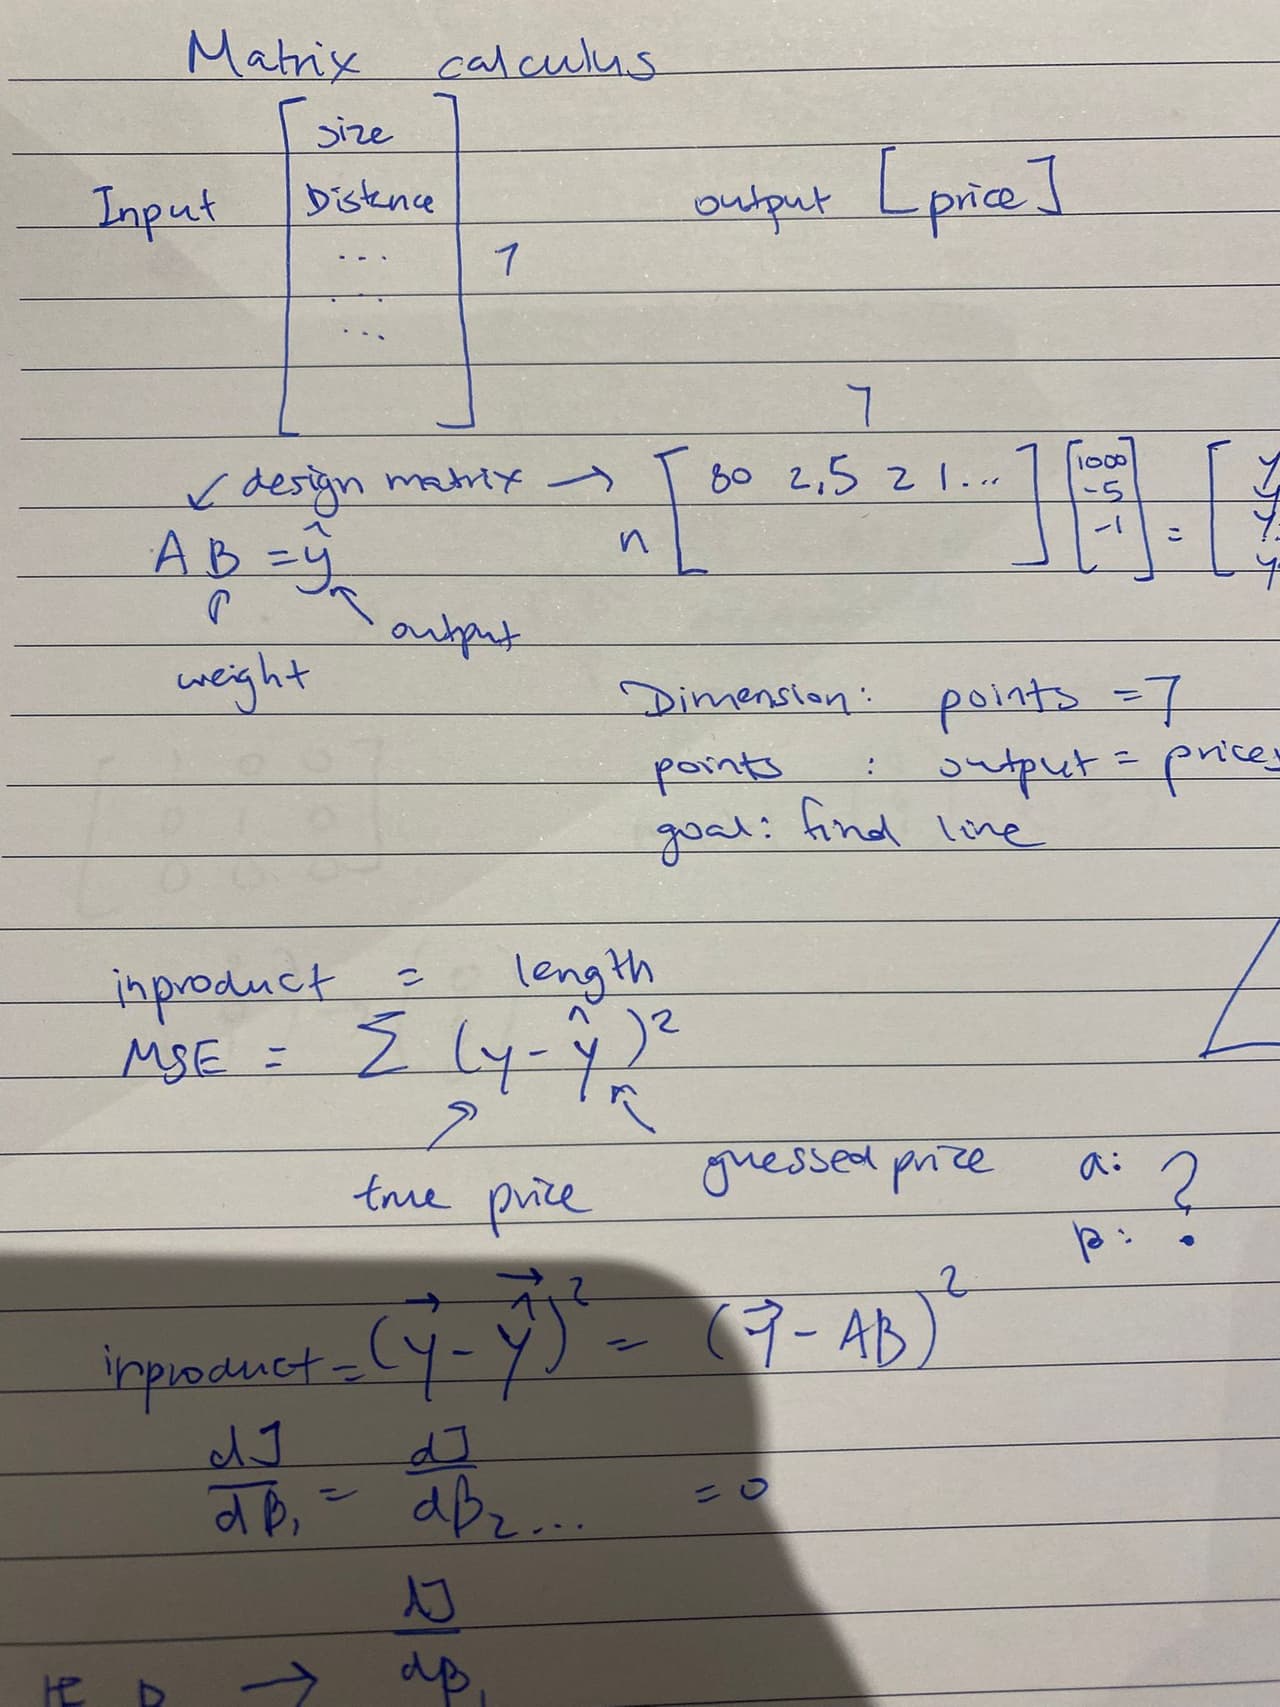 Matrix calculus
Input [ size Distance ... ... ... ] 7 output [price]
7
↙ design matrix → n [ 80 2,5 2 1... ] [ 1000 -5 -1 ] = [ y y y
A B = ŷ
↑ weight ↖ output
Dimension: points = 7
points : output = prices
goal: find line
inproduct = length
MSE = Σ (y - ŷ)²
true price guessed price a: ?
β: ?
inproduct = (y⃗ - ŷ⃗)² = (y⃗ - AB)²
dJ/dβ₁ = dJ/dβ₂ ... = 0
→ dJ/dβ₁